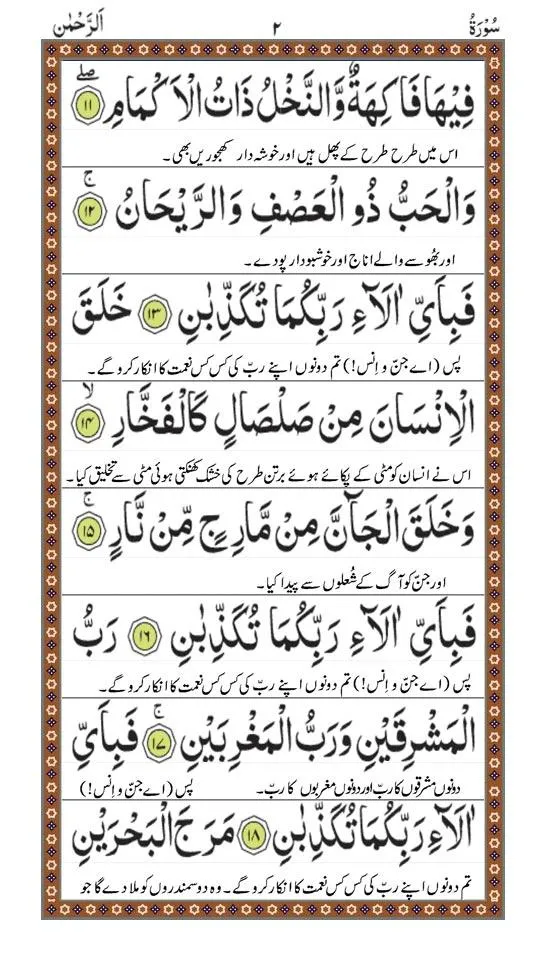 سُوْرَةُ ٢ اَلرَّحْمٰن
فِيْهَا فَاكِهَةٌ ۙ وَّالنَّخْلُ ذَاتُ الْاَكْمَامِ ۖ ١١
اس میں طرح طرح کے پھل ہیں اور خوشہ دار کھجوریں بھی۔
وَالْحَبُّ ذُو الْعَصْفِ وَالرَّيْحَانُ ۚ ١٢
اور بھُوسے والے اناج اور خوشبودار پودے۔
فَبِاَيِّ اٰلَآءِ رَبِّكُمَا تُكَذِّبٰنِ ١٣ خَلَقَ
پس (اے جنّ و اِنس!) تم دونوں اپنے ربّ کی کس کس نعمت کا انکار کرو گے۔
الْاِنْسَانَ مِنْ صَلْصَالٍ كَالْفَخَّارِ ۙ ١٤
اس نے انسان کو مٹی کے پکائے ہوئے برتن طرح کی خشک کھنکتی ہوئی مٹی سے تخلیق کیا۔
وَخَلَقَ الْجَآنَّ مِنْ مَّارِجٍ مِّنْ نَّارٍ ۚ ١٥
اور جنّ کو آگ کے شُعلوں سے پیدا کیا۔
فَبِاَيِّ اٰلَآءِ رَبِّكُمَا تُكَذِّبٰنِ ١٦ رَبُّ
پس (اے جنّ و اِنس!) تم دونوں اپنے ربّ کی کس کس نعمت کا انکار کرو گے۔
الْمَشْرِقَيْنِ وَرَبُّ الْمَغْرِبَيْنِ ۚ ١٧ فَبِاَيِّ
دونوں مشرقوں کا ربّ اور دونوں مغربوں کا ربّ۔ پس (اے جنّ و اِنس!)
اٰلَآءِ رَبِّكُمَا تُكَذِّبٰنِ ١٨ مَرَجَ الْبَحْرَيْنِ
تم دونوں اپنے ربّ کی کس کس نعمت کا انکار کرو گے۔ وہ دو سمندروں کو ملا دے گا جو